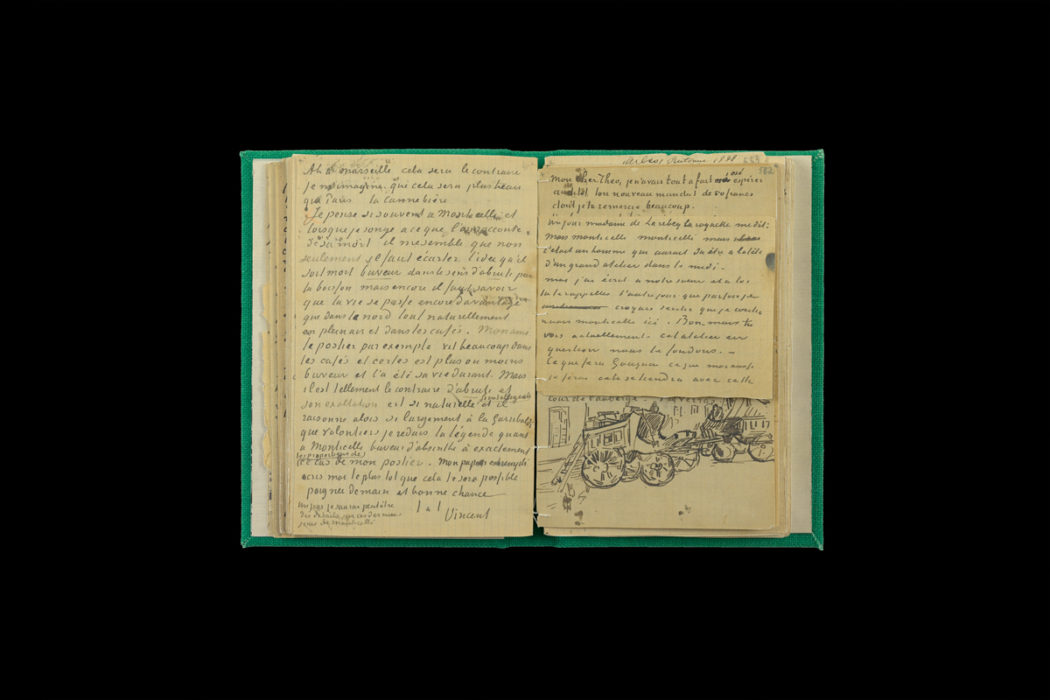 Ah à marseille cela sera le contraire
je m'imagine que cela sera plus beau
que Paris la cannebière.
Je pense si souvent a Monticelli et
lorsque je songe a ce que l'on raconte
de sa mort il me semble que non
seulement il faut écarter l'idée qu'il
soit mort buveur dans le sens d'abruti par
la boisson mais encore il faut savoir
que la vie se passe encore davantage
que dans le nord tout naturellement
en plein air et dans les cafés. Mon ami
le postier par exemple vit beaucoup dans
les cafés et certes est plus ou moins
buveur et l'a été sa vie durant. Mais
il est tellement le contraire d'abruti et
son exaltation est si naturelle si intelligente et il
raisonne alors si largement à la Garibaldi
que volontiers je réduis la légende quant
a Monticelli buveur d'absinthe à exactement
les proportions de
le cas de mon postier. Mon papier est rempli
écris moi le plus tôt que cela te sera possible
poignée de main et bonne chance
t. à t.
Vincent
Un jour je saurai peut être
des détails sur ces derniers
jours de Monticelli
Arles Automne 1888 553
552
mon cher Theo, je n'avais tout a fait osé espérer
aussitôt ton nouveau mandat de 50 francs
dont je te remercie beaucoup.
Un jour madame de Larebey la roquette me dit:
Mais monticelli monticelli mais
c'était un homme qui aurait du être a la tête
d'un grand atelier dans le midi -
moi j'ai écrit a notre soeur et a toi
tu te rappelles l'autre jour que parfois je
croyais sentir que je continue
monticelli ici. Bon, mais tu
vois actuellement - cet atelier en
question nous le fondons. -
Ce que fera Gauguin ce que moi aussi
je ferai cela se tiendra avec cette
cour de l'auberge